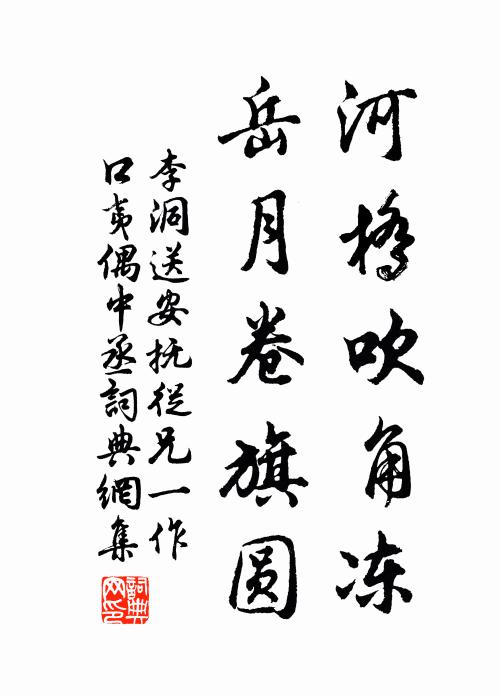 河橋吹角冻
岳月卷旗圆
李洞送安抚從兄一作
口夷偶中丞詞典網集
詞典
网印